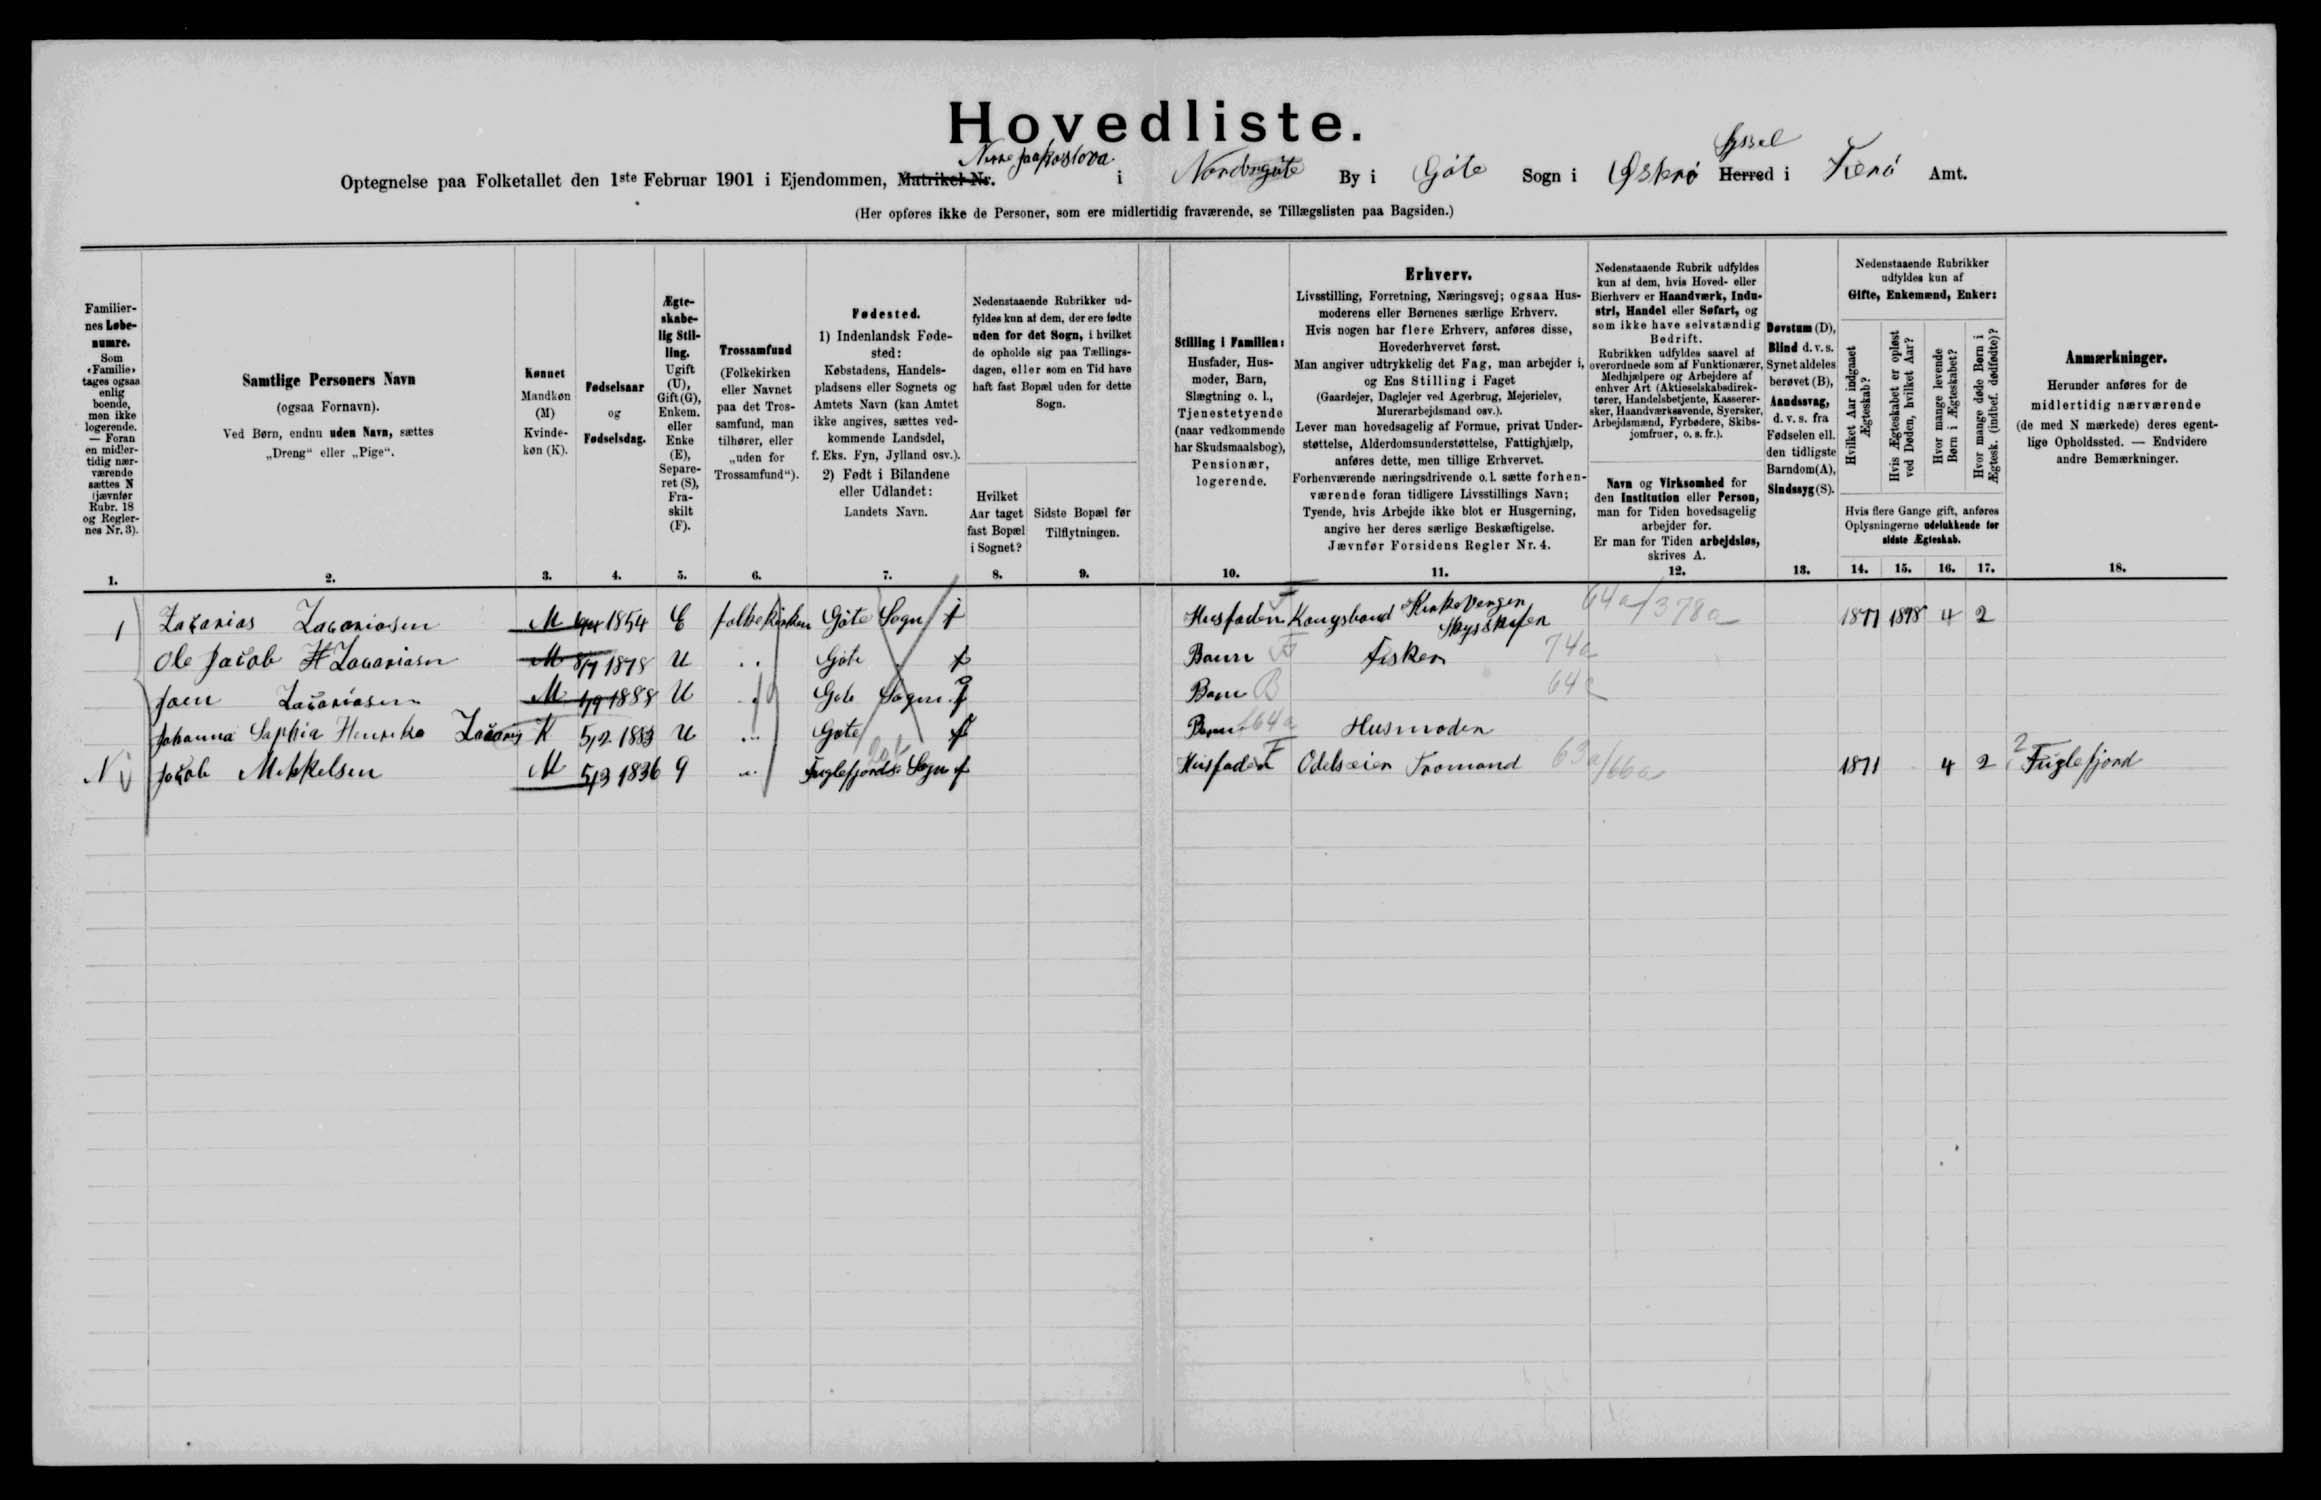 Hovedliste.
Optegnelse paa Folketallet den 1ste Februar 1901 i Ejendommen, Matrikel-Nr. i Nordregöte By i Göte Sogn i Østerø Herred Syssel i Færö Amt.
(Her opføres ikke de Personer, som ere midlertidig fraværende, se Tillægslisten paa Bagsiden.)
Familiernes Løbenumre.
Som «Familie» tages ogsaa enlig boende, men ikke logerende. — Foran en midlertidig nærværende sættes N (jævnfør Rubr. 18 og Reglernes Nr. 3).
1.
Samtlige Personers Navn
(ogsaa Fornavn).
Ved Børn, endnu uden Navn, sættes
„Dreng“ eller „Pige“.
2.
Kønnet
Mandkøn (M)
Kvindekøn (K).
3.
Fødselsaar
og
Fødselsdag.
4.
Ægteskabelig Stilling.
Ugift (U), Gift (G), Enkem. eller Enke (E), Separeret (S), Fraskilt (F).
5.
Trossamfund
(Folkekirken eller Navnet paa det Trossamfund, man tilhører, eller „uden for Trossamfund“).
6.
Fødested.
1) Indenlandsk Fødested:
Købstadens, Handelspladsens eller Sognets og Amtets Navn (kan Amtet ikke angives, sættes vedkommende Landsdel, f. Eks. Fyn, Jylland osv.).
2) Født i Bilandene eller Udlandet:
Landets Navn.
7.
Nedenstaaende Rubrikker udfyldes kun af dem, der ere fødte uden for det Sogn, i hvilket de opholde sig paa Tællingsdagen, eller som en Tid have haft fast Bopæl uden for dette Sogn.
Hvilket Aar taget fast Bopæl i Sognet?
8.
Sidste Bopæl før Tilflytningen.
9.
Stilling i Familien:
Husfader, Husmoder, Barn, Slægtning o. l., Tjenestetyende (naar vedkommende har Skudsmaalsbog), Pensionær, logerende.
10.
Erhverv.
Livsstilling, Forretning, Næringsvej; ogsaa Husmoderens eller Børnenes særlige Erhverv.
Hvis nogen har flere Erhverv, anføres disse, Hovederhvervet først.
Man angiver udtrykkelig det Fag, man arbejder i, og Ens Stilling i Faget
(Gaardejer, Daglejer ved Agerbrug, Mejerielev, Murerarbejdsmand osv.).
Lever man hovedsagelig af Formue, privat Understøttelse, Alderdomsunderstøttelse, Fattighjælp, anføres dette, men tillige Erhvervet.
Forhenværende næringsdrivende o. l. sætte forhenværende foran tidligere Livsstillings Navn;
Tyende, hvis Arbejde ikke blot er Husgerning, angive her deres særlige Beskæftigelse.
Jævnfør Forsidens Regler Nr. 4.
11.
Nedenstaaende Rubrik udfyldes kun af dem, hvis Hoved- eller Bierhverv er Haandværk, Industri, Handel eller Søfart, og som ikke have selvstændig Bedrift.
Rubrikken udfyldes saavel af overordnede som af Funktionærer, Medhjælpere og Arbejdere af enhver Art (Aktieselskabsdirektører, Handelsbetjente, Kasserersker, Haandværkssvende, Syersker, Arbejdsmænd, Fyrbødere, Skibsjomfruer, o. s. fr.).
Navn og Virksomhed for den Institution eller Person, man for Tiden hovedsagelig arbejder for.
Er man for Tiden arbejdsløs, skrives A.
12.
Døvstum (D), Blind d. v. s. Synet aldeles berøvet (B), Aandssvag, d. v. s. fra Fødselen ell. den tidligste Barndom (A), Sindssyg (S).
13.
Nedenstaaende Rubrikker udfyldes kun af
Gifte, Enkemænd, Enker:
Hvilket Aar indgaaet Ægteskab?
Hvis Ægteskabet er opløst ved Døden, hvilket Aar?
Hvor mange levende Børn i Ægteskabet?
Hvor mange døde Børn i Ægtesk. (indbef. dødfødte)?
Hvis flere Gange gift, anføres Oplysningerne udelukkende for sidste Ægteskab.
14. 15. 16. 17.
Anmærkninger.
Herunder anføres for de midlertidig nærværende (de med N mærkede) deres egentlige Opholdssted. — Endvidere andre Bemærkninger.
18.
1 Zacarias Zacariasen M 1854 E folkekirken Göte Sogn Husfader Kongsbond 64a/378a 1877 1898 4 2
Ole Jacob H Zacariasen M 8/7 1878 U „ Göte Barn Fisker 74a
Joen Zacariasen M 1/9 1888 U „ Göte Sogn Barn B 64a
Johanna Sophia Henrika Zacarias K 5/2 1883 U „ Göte Barn 64a Husmoder
N Jacob Mikkelsen M 5/3 1836 G „ Fuglefjords Sogn Husfader Odelseier Tromand 63a/66a 1871 4 2 Fuglefjord